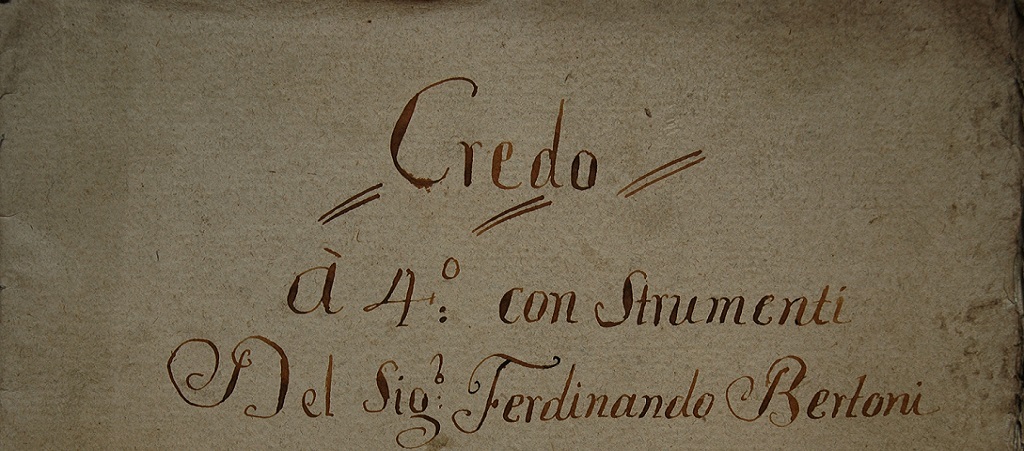 Credo
à 4:º con Strumenti
Del Sig:r Ferdinando Bertoni